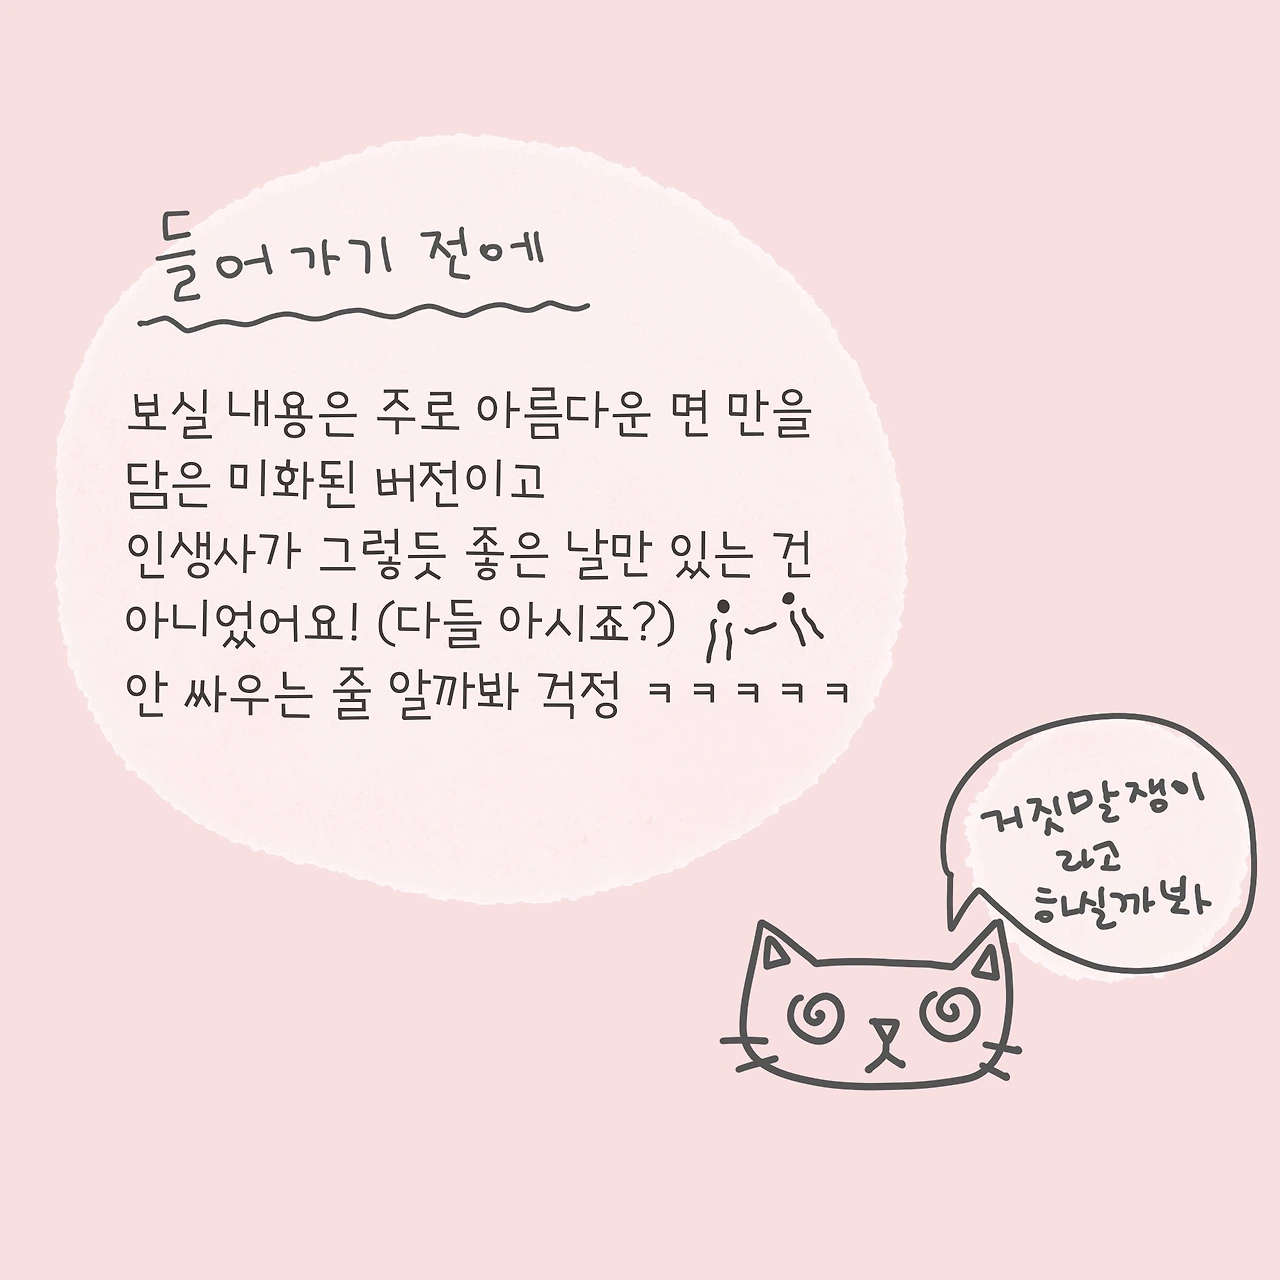 들어가기 전에
보실 내용은 주로 아름다운 면 만을
담은 미화된 버전이고
인생사가 그렇듯 좋은 날만 있는 건
아니었어요! (다들 아시죠?)
안 싸우는 줄 알까봐 걱정 ㅋㅋㅋㅋㅋ
거짓말쟁이
라고
하실까봐